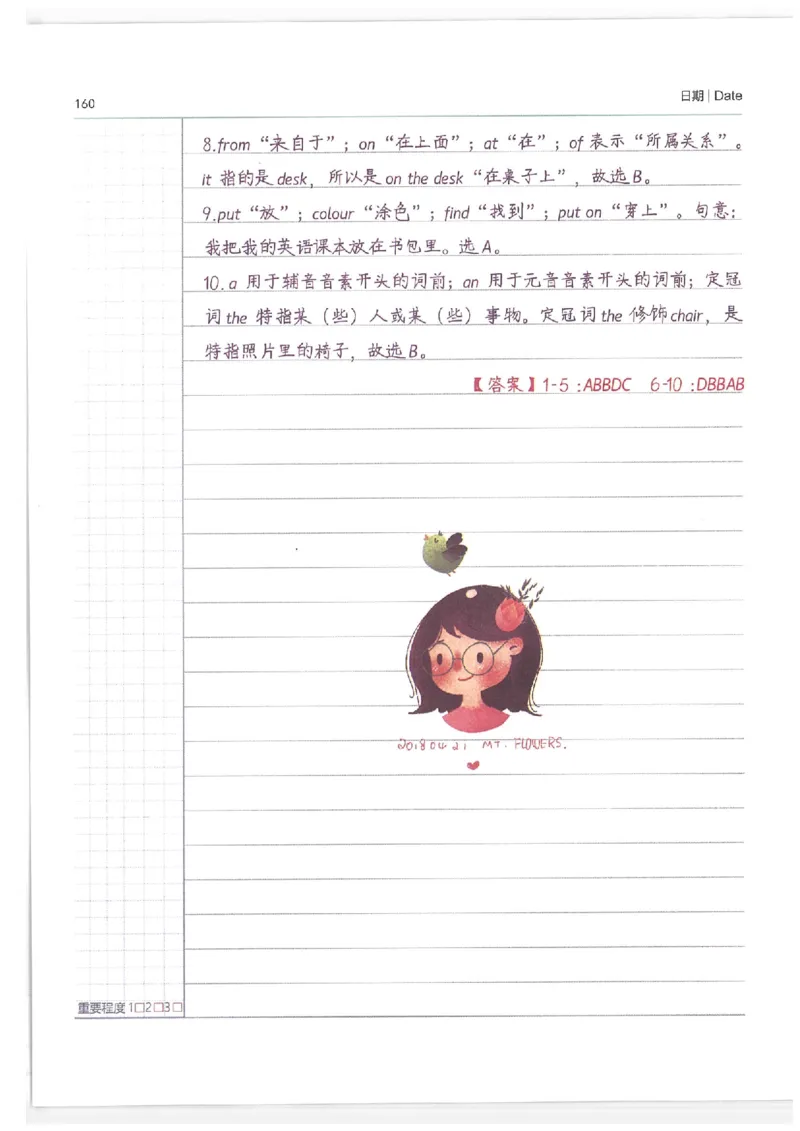 160
日期 | Date
8.from“来自于”；on“在上面”；at“在”；of表示“所属关系”。
it 指的是desk，所以是on the desk“在桌子上”，故选B。
9.put“放”；colour“涂色”；find“找到”；put on“穿上”。句意：
我把我的英语课本放在书包里。选A。
10.a 用于辅音音素开头的词前；an 用于元音音素开头的词前；定冠
词the 特指某（些）人或某（些）事物。定冠词the 修饰chair，是
特指照片里的椅子，故选B。
【答案】1-5 :ABBDC 6-10 :DBBAB
20180421 MT. FLOWERS.
重要程度 1□2□3□